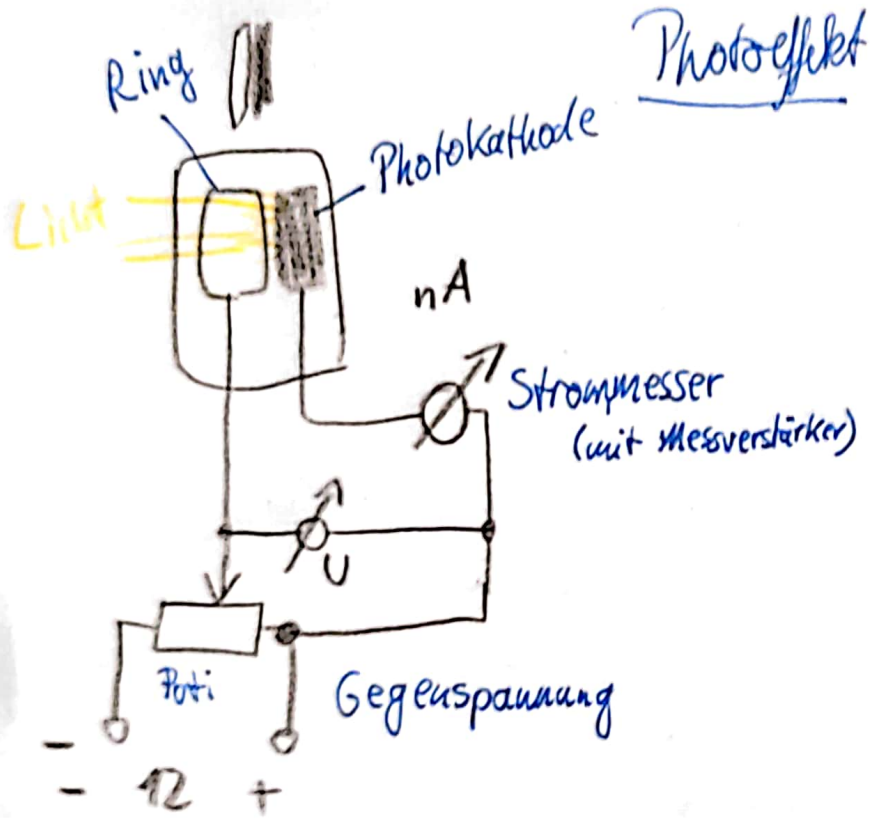 Photoeffekt
Ring
Photokathode
Licht
nA
Strommesser
(mit Messverstärker)
U
Poti
Gegenspannung
- +
- 12 +